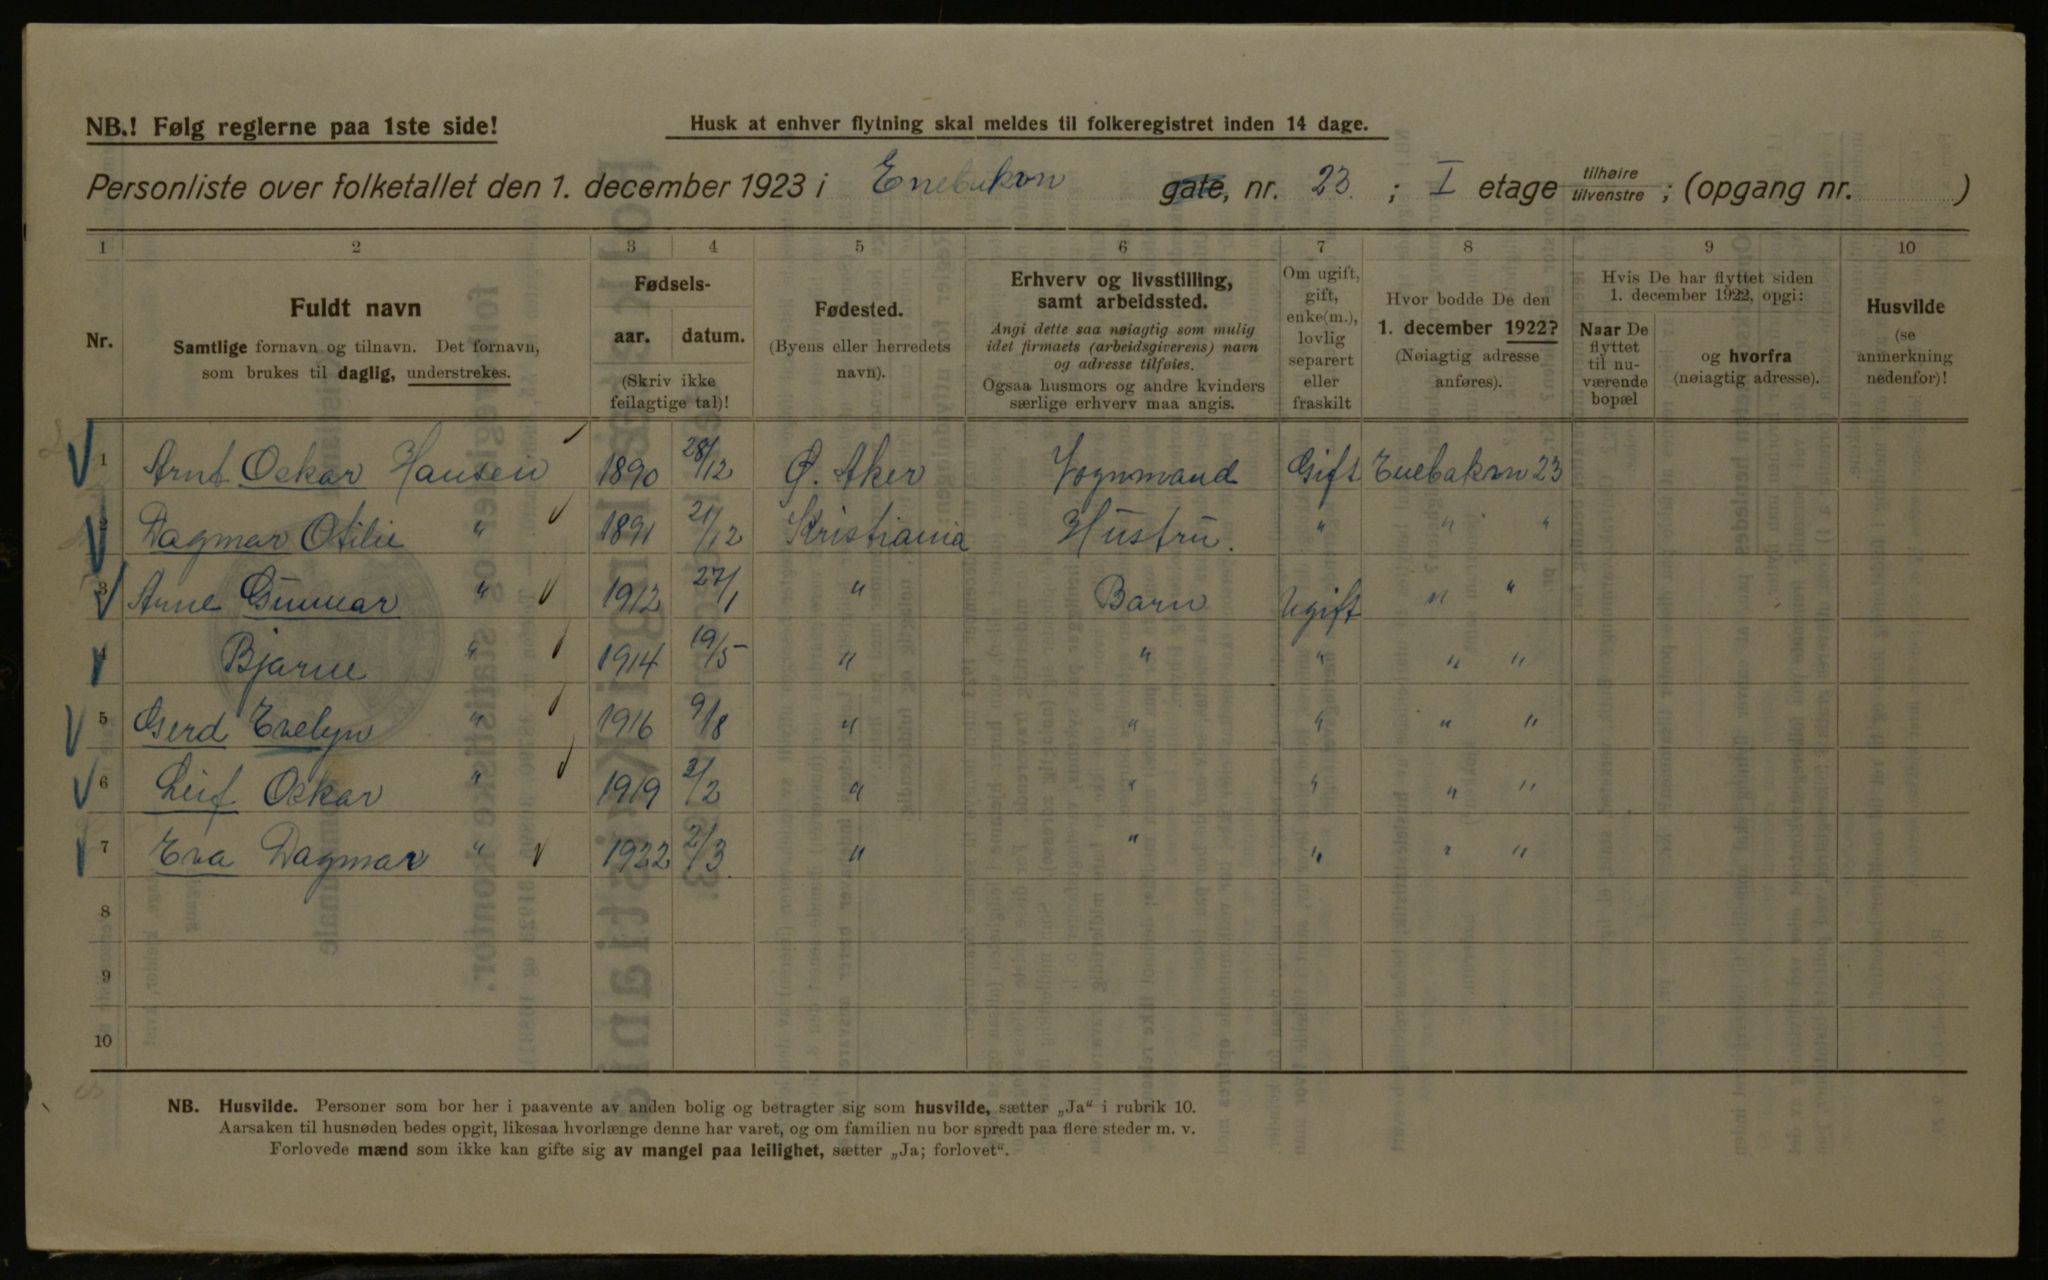 NB.! Følg reglerne paa 1ste side!
Husk at enhver flytning skal meldes til folkeregistret inden 14 dage.
Personliste over folketallet den 1. december 1923 i Enebakvn gate, nr. 23. ; I etage tilhøire tilvenstre ; (opgang nr. )
1 2 3 4 5 6 7 8 9 10
Nr.
Fuldt navn
Samtlige fornavn og tilnavn. Det fornavn,
som brukes til daglig, understrekes.
Fødsels-
aar. datum.
(Skriv ikke
feilagtige tal)!
Fødested.
(Byens eller herredets
navn).
Erhverv og livsstilling,
samt arbeidssted.
Angi dette saa nøiagtig som mulig
idet firmaets (arbeidsgiverens) navn
og adresse tilføies.
Ogsaa husmors og andre kvinders
særlige erhverv maa angis.
Om ugift,
gift,
enke(m.),
lovlig
separert
eller
fraskilt
Hvor bodde De den
1. december 1922?
(Nøiagtig adresse
anføres).
Hvis De har flyttet siden
1. december 1922, opgi:
Naar De
flyttet
til nu-
værende
bopæl
og hvorfra
(nøiagtig adresse).
Husvilde
(se
anmerkning
nedenfor)!
1 Arnt Oskar Hansen 1890 28/12 Ø. Aker Vognmand Gift Enebakvn 23
2 Dagmar Otilie " 1891 21/12 Kristiania Hustru. " " "
3 Arne Gunnar " 1912 27/1 " Barn Ugift " "
4 Bjarne " 1914 19/5 " " " " "
5 Gerd Evelyn " 1916 9/8 " " " " "
6 Leif Oskar " 1919 2/2 " " " " "
7 Eva Dagmar " 1922 2/3. " " " " "
8
9
10
NB. Husvilde. Personer som bor her i paavente av anden bolig og betragter sig som husvilde, sætter „Ja“ i rubrik 10.
Aarsaken til husnøden bedes opgit, likesaa hvorlænge denne har varet, og om familien nu bor spredt paa flere steder m. v.
Forlovede mænd som ikke kan gifte sig av mangel paa leilighet, sætter „Ja; forlovet“.